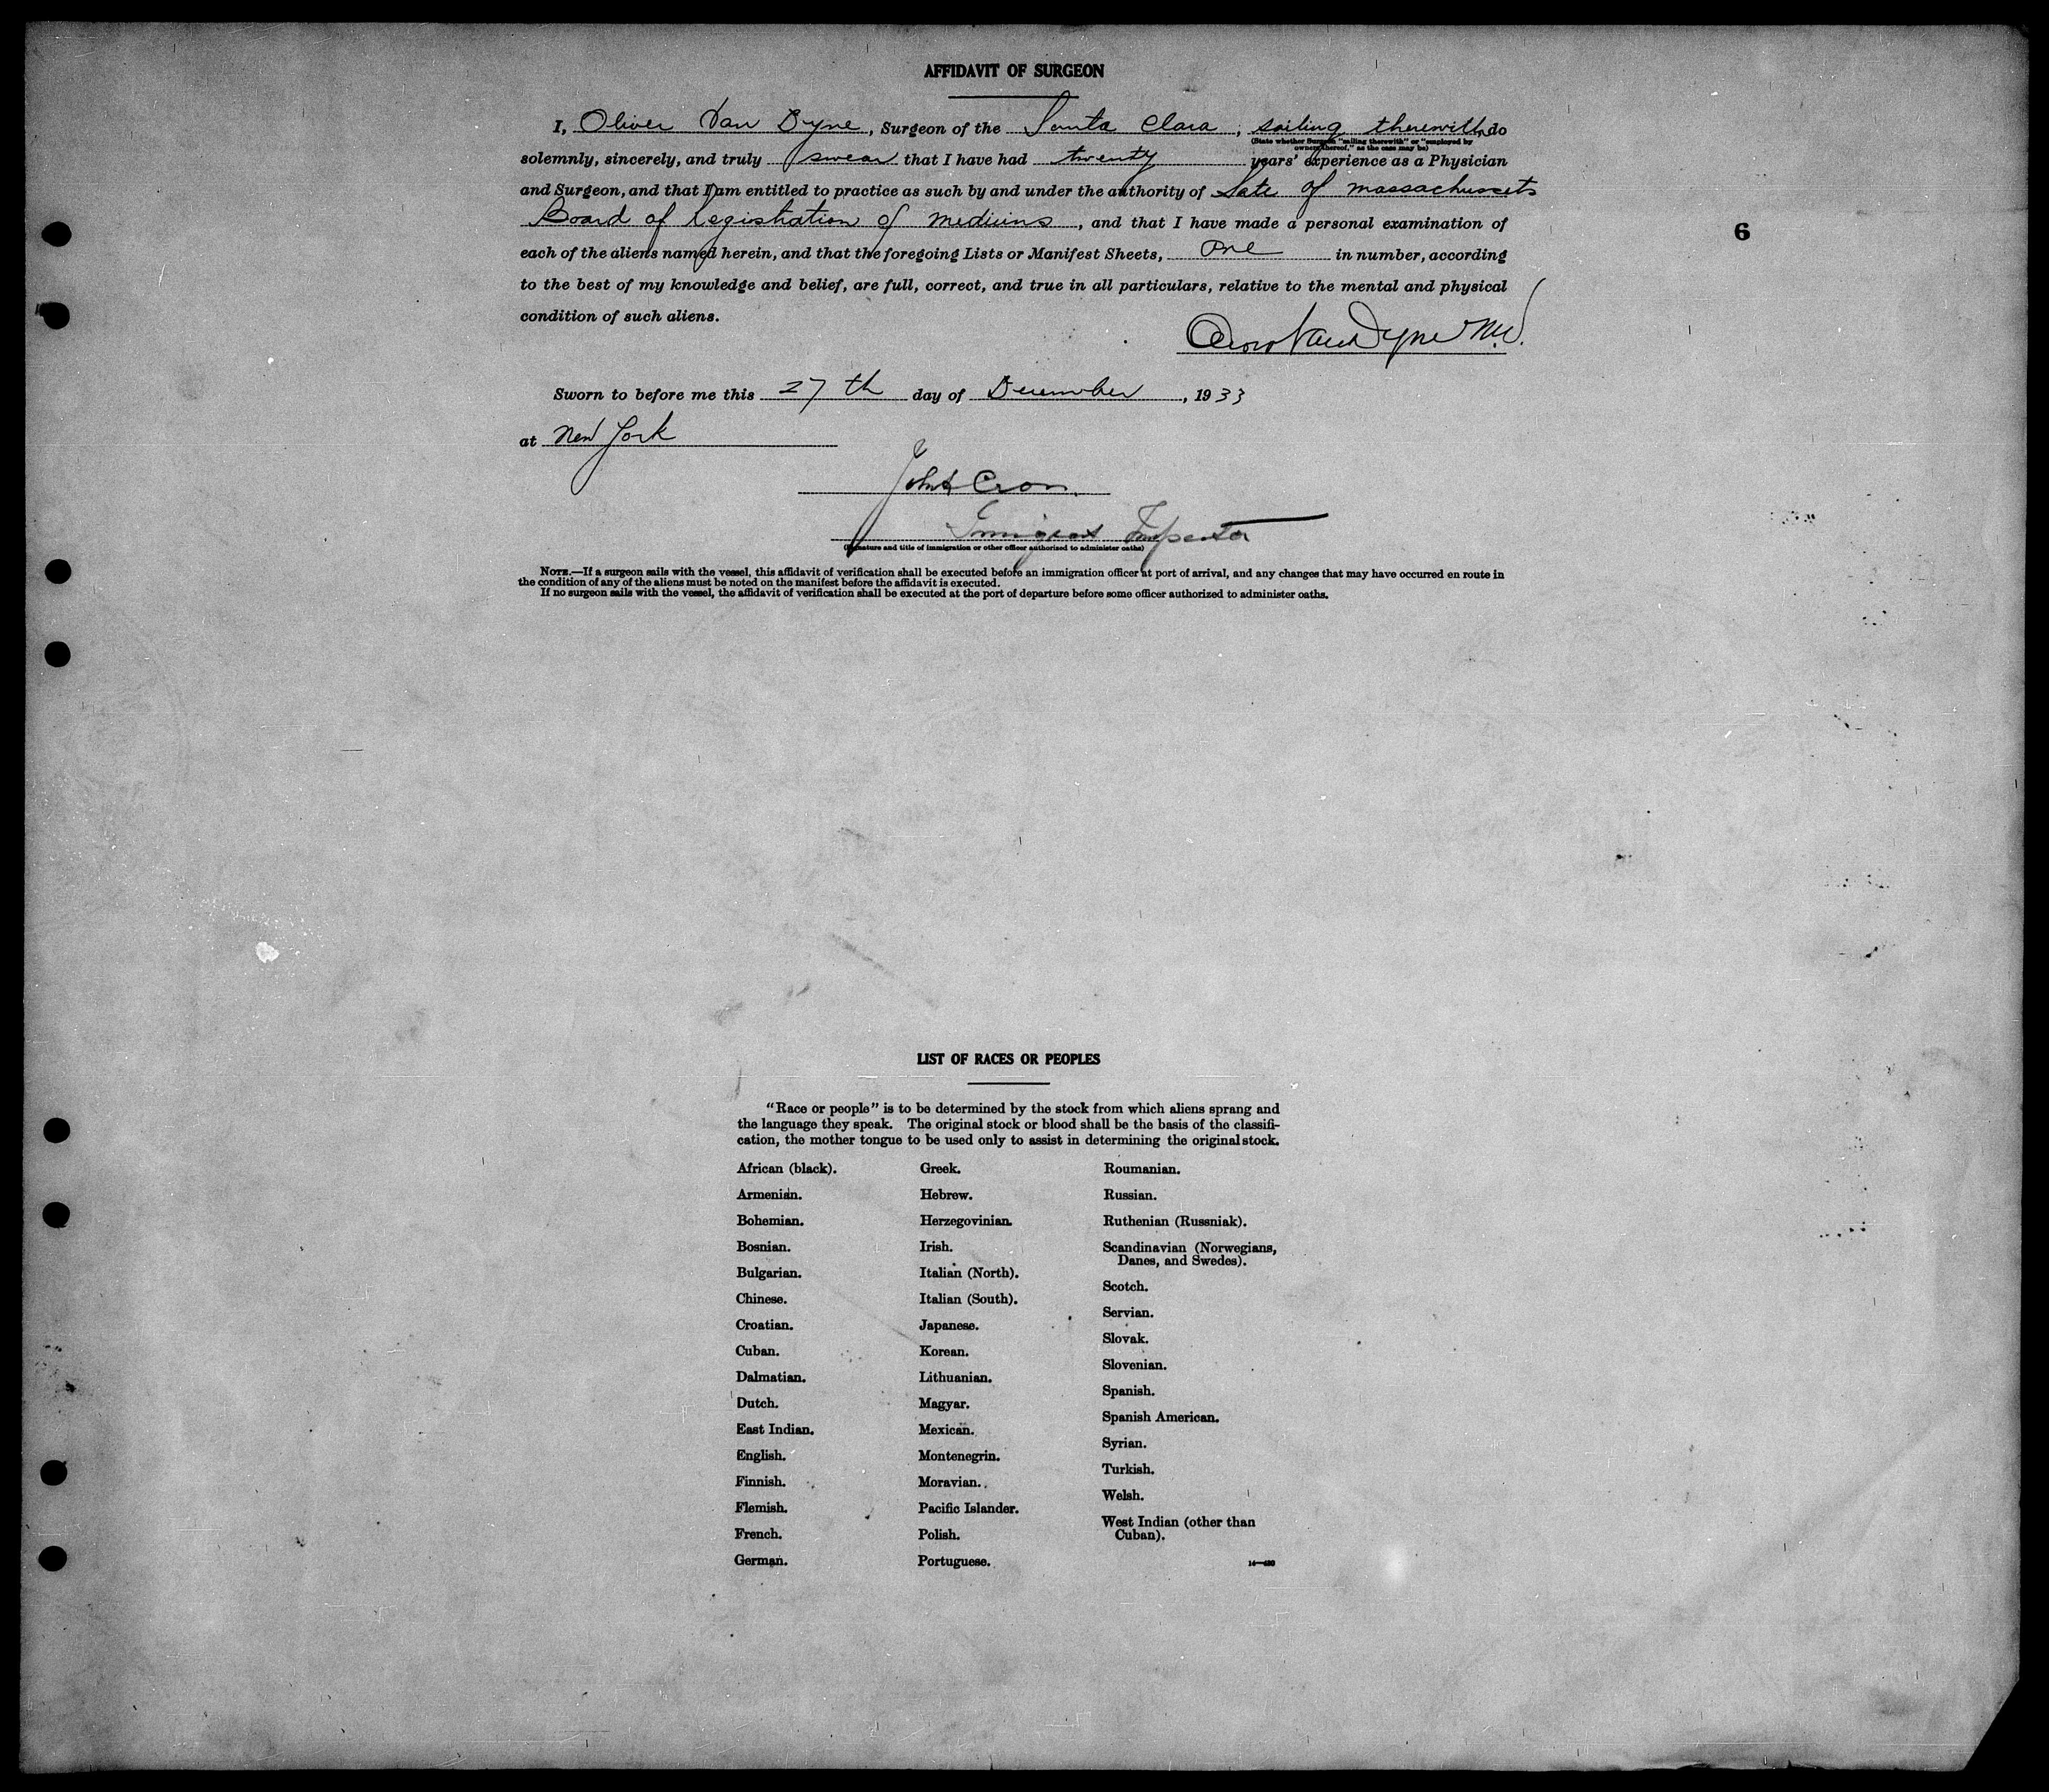 AFFIDAVIT OF SURGEON
I, Oliver Van Dyne, Surgeon of the Santa Clara, sailing therewith do
(State whether Surgeon "sailing therewith" or "employed by
owners thereof," as the case may be)
solemnly, sincerely, and truly swear that I have had twenty years' experience as a Physician
and Surgeon, and that I am entitled to practice as such by and under the authority of State of Massachussets
Board of Registration of Medicine, and that I have made a personal examination of
6
each of the aliens named herein, and that the foregoing Lists or Manifest Sheets, one in number, according
to the best of my knowledge and belief, are full, correct, and true in all particulars, relative to the mental and physical
condition of such aliens.
Van Dyne M.D.
Sworn to before me this 27 th day of December, 1933
at New York
Immigrant Inspector
(Signature and title of immigration or other officer authorized to administer oaths)
NOTE.—If a surgeon sails with the vessel, this affidavit of verification shall be executed before an immigration officer at port of arrival, and any changes that may have occurred en route in
the condition of any of the aliens must be noted on the manifest before the affidavit is executed.
If no surgeon sails with the vessel, the affidavit of verification shall be executed at the port of departure before some officer authorized to administer oaths.
LIST OF RACES OR PEOPLES
"Race or people" is to be determined by the stock from which aliens sprang and
the language they speak. The original stock or blood shall be the basis of the classifi-
cation, the mother tongue to be used only to assist in determining the original stock.
African (black).
Armenian.
Bohemian.
Bosnian.
Bulgarian.
Chinese.
Croatian.
Cuban.
Dalmatian.
Dutch.
East Indian.
English.
Finnish.
Flemish.
French.
German.
Greek.
Hebrew.
Herzegovinian.
Irish.
Italian (North).
Italian (South).
Japanese.
Korean.
Lithuanian.
Magyar.
Mexican.
Montenegrin.
Moravian.
Pacific Islander.
Polish.
Portuguese.
Roumanian.
Russian.
Ruthenian (Russniak).
Scandinavian (Norwegians,
Danes, and Swedes).
Scotch.
Servian.
Slovak.
Slovenian.
Spanish.
Spanish American.
Syrian.
Turkish.
Welsh.
West Indian (other than
Cuban).